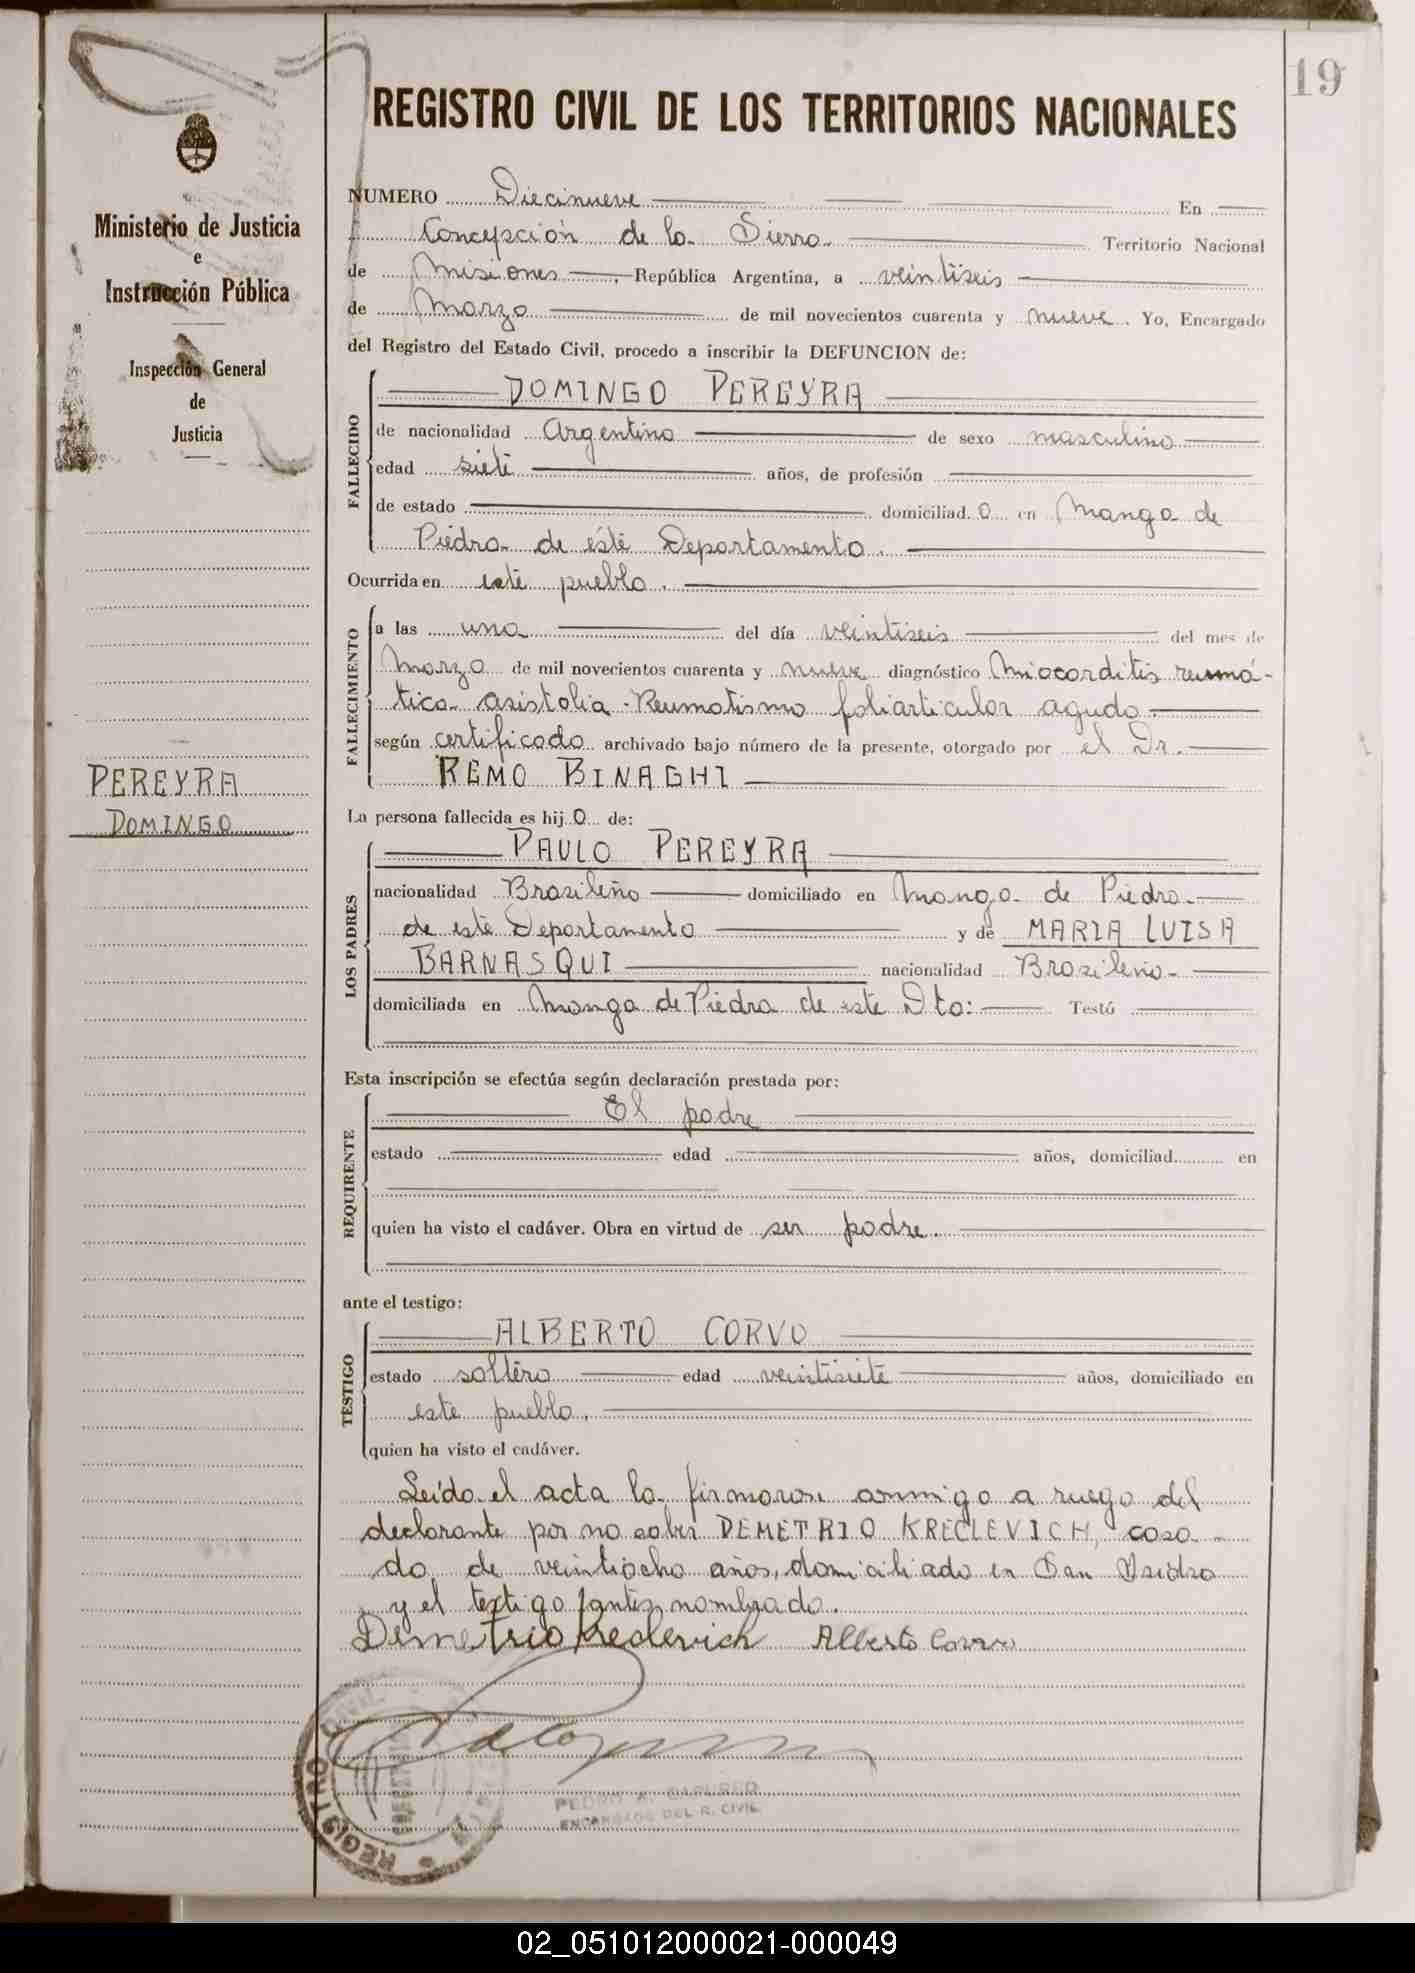 19
REGISTRO CIVIL DE LOS TERRITORIOS NACIONALES
Ministerio de Justicia
e
Instrucción Pública
Inspección General
de
Justicia
PEREYRA
DOMINGO
NUMERO Diecinueve En
Concepción de la Sierra Territorio Nacional
de Misiones, República Argentina, a veintiseis
de Marzo de mil novecientos cuarenta y nueve. Yo, Encargado
del Registro del Estado Civil, procedo a inscribir la DEFUNCION de:
FALLECIDO
DOMINGO PEREYRA
de nacionalidad Argentina de sexo masculino
edad siete años, de profesión
de estado domiciliad o en Manga de
Piedra de éste Departamento.
Ocurrida en este pueblo.
FALLECIMIENTO
a las una del día veintiseis del mes de
Marzo de mil novecientos cuarenta y nueve diagnóstico Miocarditis reumá-
tica asistolia - Reumatismo poliarticular agudo.
según certificado archivado bajo número de la presente, otorgado por el Dr.
REMO BINAGHI
La persona fallecida es hij o de:
LOS PADRES
PAULO PEREYRA
nacionalidad Brasileño domiciliado en Manga de Piedra
de este Departamento y de MARIA LUISA
BARNASQUI nacionalidad Brasileña
domiciliada en Manga de Piedra de este Dto: Testó
Esta inscripción se efectúa según declaración prestada por:
REQUIRENTE
El padre
estado edad años, domiciliad en
quien ha visto el cadáver. Obra en virtud de ser padre.
ante el testigo:
TESTIGO
ALBERTO CORVO
estado soltero edad veintisiete años, domiciliado en
este pueblo,
quien ha visto el cadáver.
Leída el acta la firmaron conmigo a ruego del
declarante por no saber DEMETRIO KRECLEVICH, casa-
do, de veintiocho años, domiciliado en San Isidro
y el testigo antes nombrado.
Demetrio Kreclevich Alberto Corvo
REGISTRO CIVIL
PEDRO A.
ENCARGADO DEL R. CIVIL
02_051012000021-000049